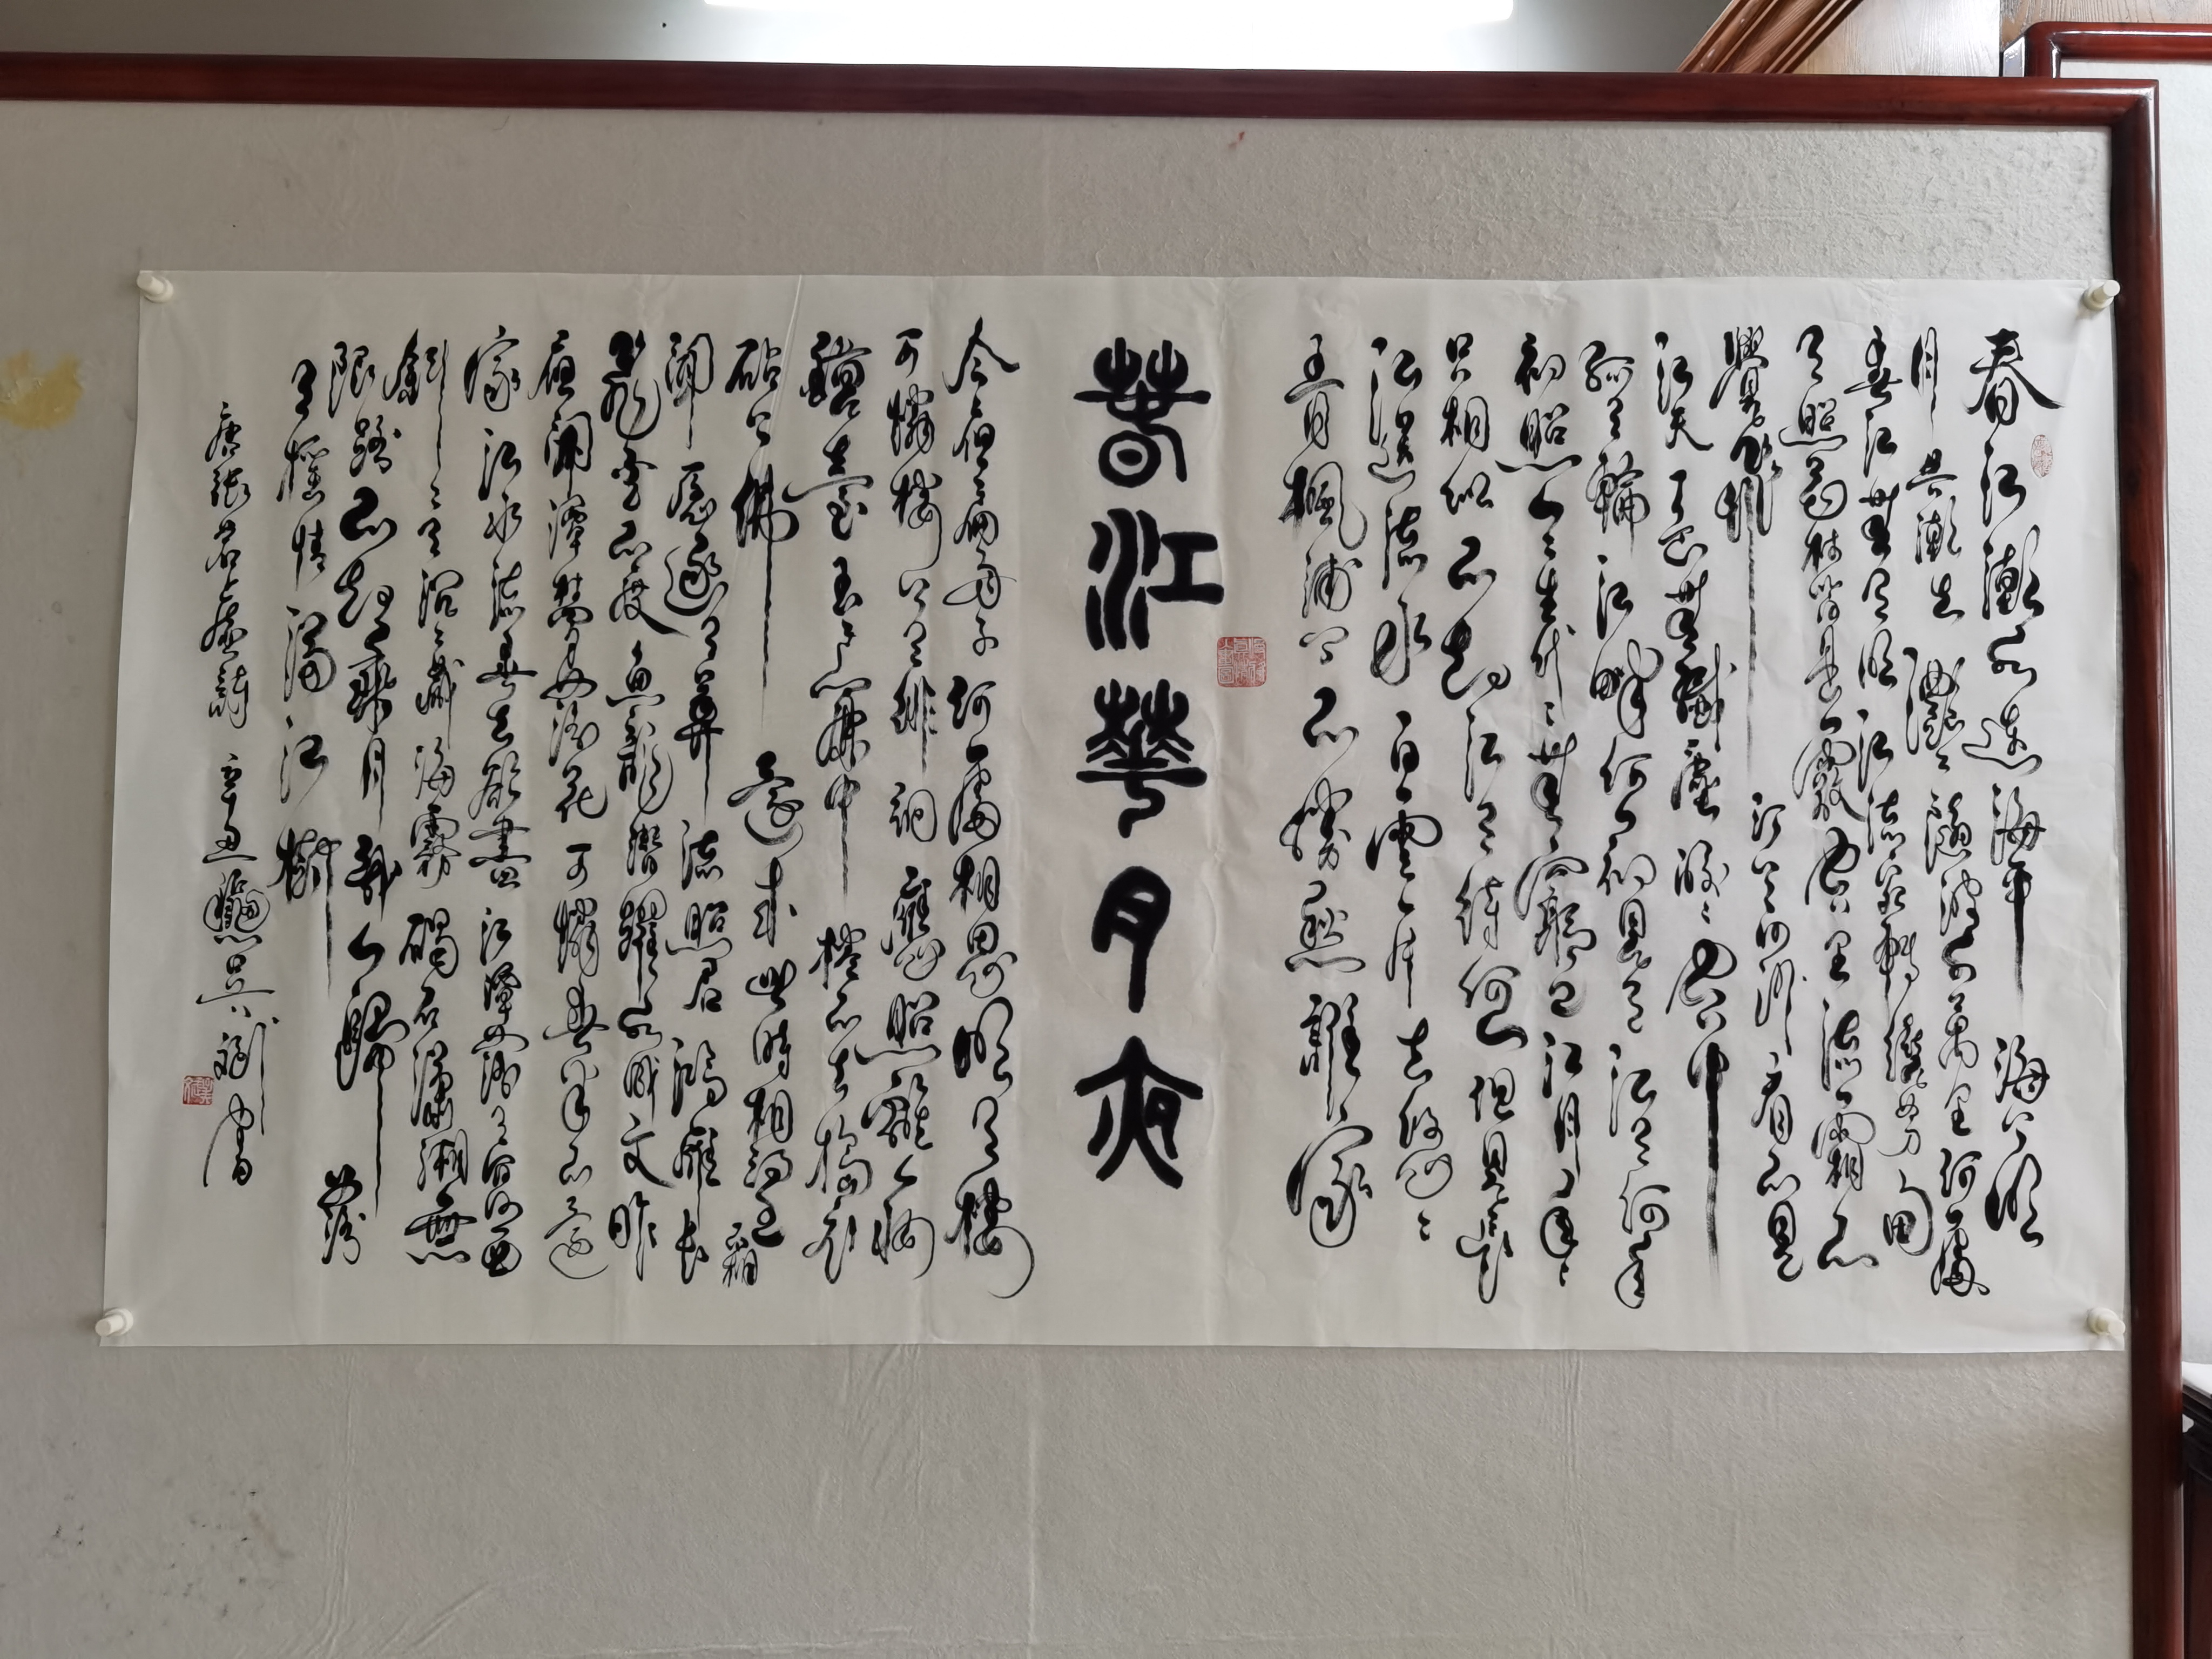 春江潮水連海平海上明
月共潮生灩灩隨波千萬里何處
春江無月明江流宛轉繞芳甸
月照花林皆似霰空里流霜不
覺飛汀上白沙看不見
江天一色無纖塵皎皎空中
孤月輪江畔何人初見月江月何年
初照人人生代代無窮已江月年年
只相似不知江月待何人但見長
江送流水白雲一片去悠悠
青楓浦上不勝愁誰家
春江華月夜
今夜扁舟子何處相思明月樓
可憐樓上月徘徊應照離人妝
鏡臺玉戶簾中卷不去擣衣
砧上拂還來此時相望不相
聞願逐月華流照君鴻雁長
飛光不度魚龍潛躍水成文昨
夜閒潭夢落花可憐春半不還
家江水流春去欲盡江潭落月復西
斜斜月沉沉藏海霧碣石瀟湘無
限路不知乘月幾人歸落
月搖情滿江樹
唐張若虛詩辛丑龝吳書